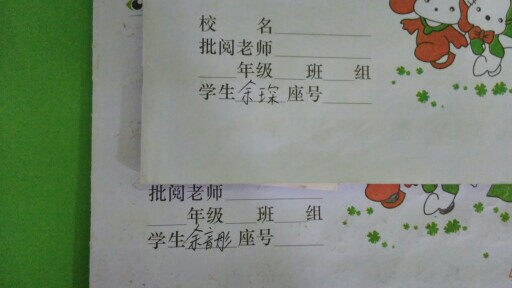 校 名
批阅老师
年级 班 组
学生余琛座号
批阅老师
年级 班 组
学生余彦彤座号